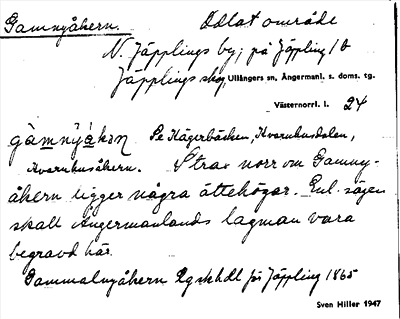 Gammyåkern. Odlat område
N. Jäpplings by; på Jäppling 1 b
Jäpplings skog, Ullångers sn, Ångermanl. s. doms. tg.
Västernorrl. l. 24
Se Kägerbäcken, Kvarnhusdalen,
Kvarnhusåkern. Strax norr om Gammy-
åkern ligger några ättehögar. Enl. sägen
skall Ångermanlands lagman vara
begravd här.
Gammalnyåkern Lgskhdl för Jäppling 1865
Sven Hiller 1947